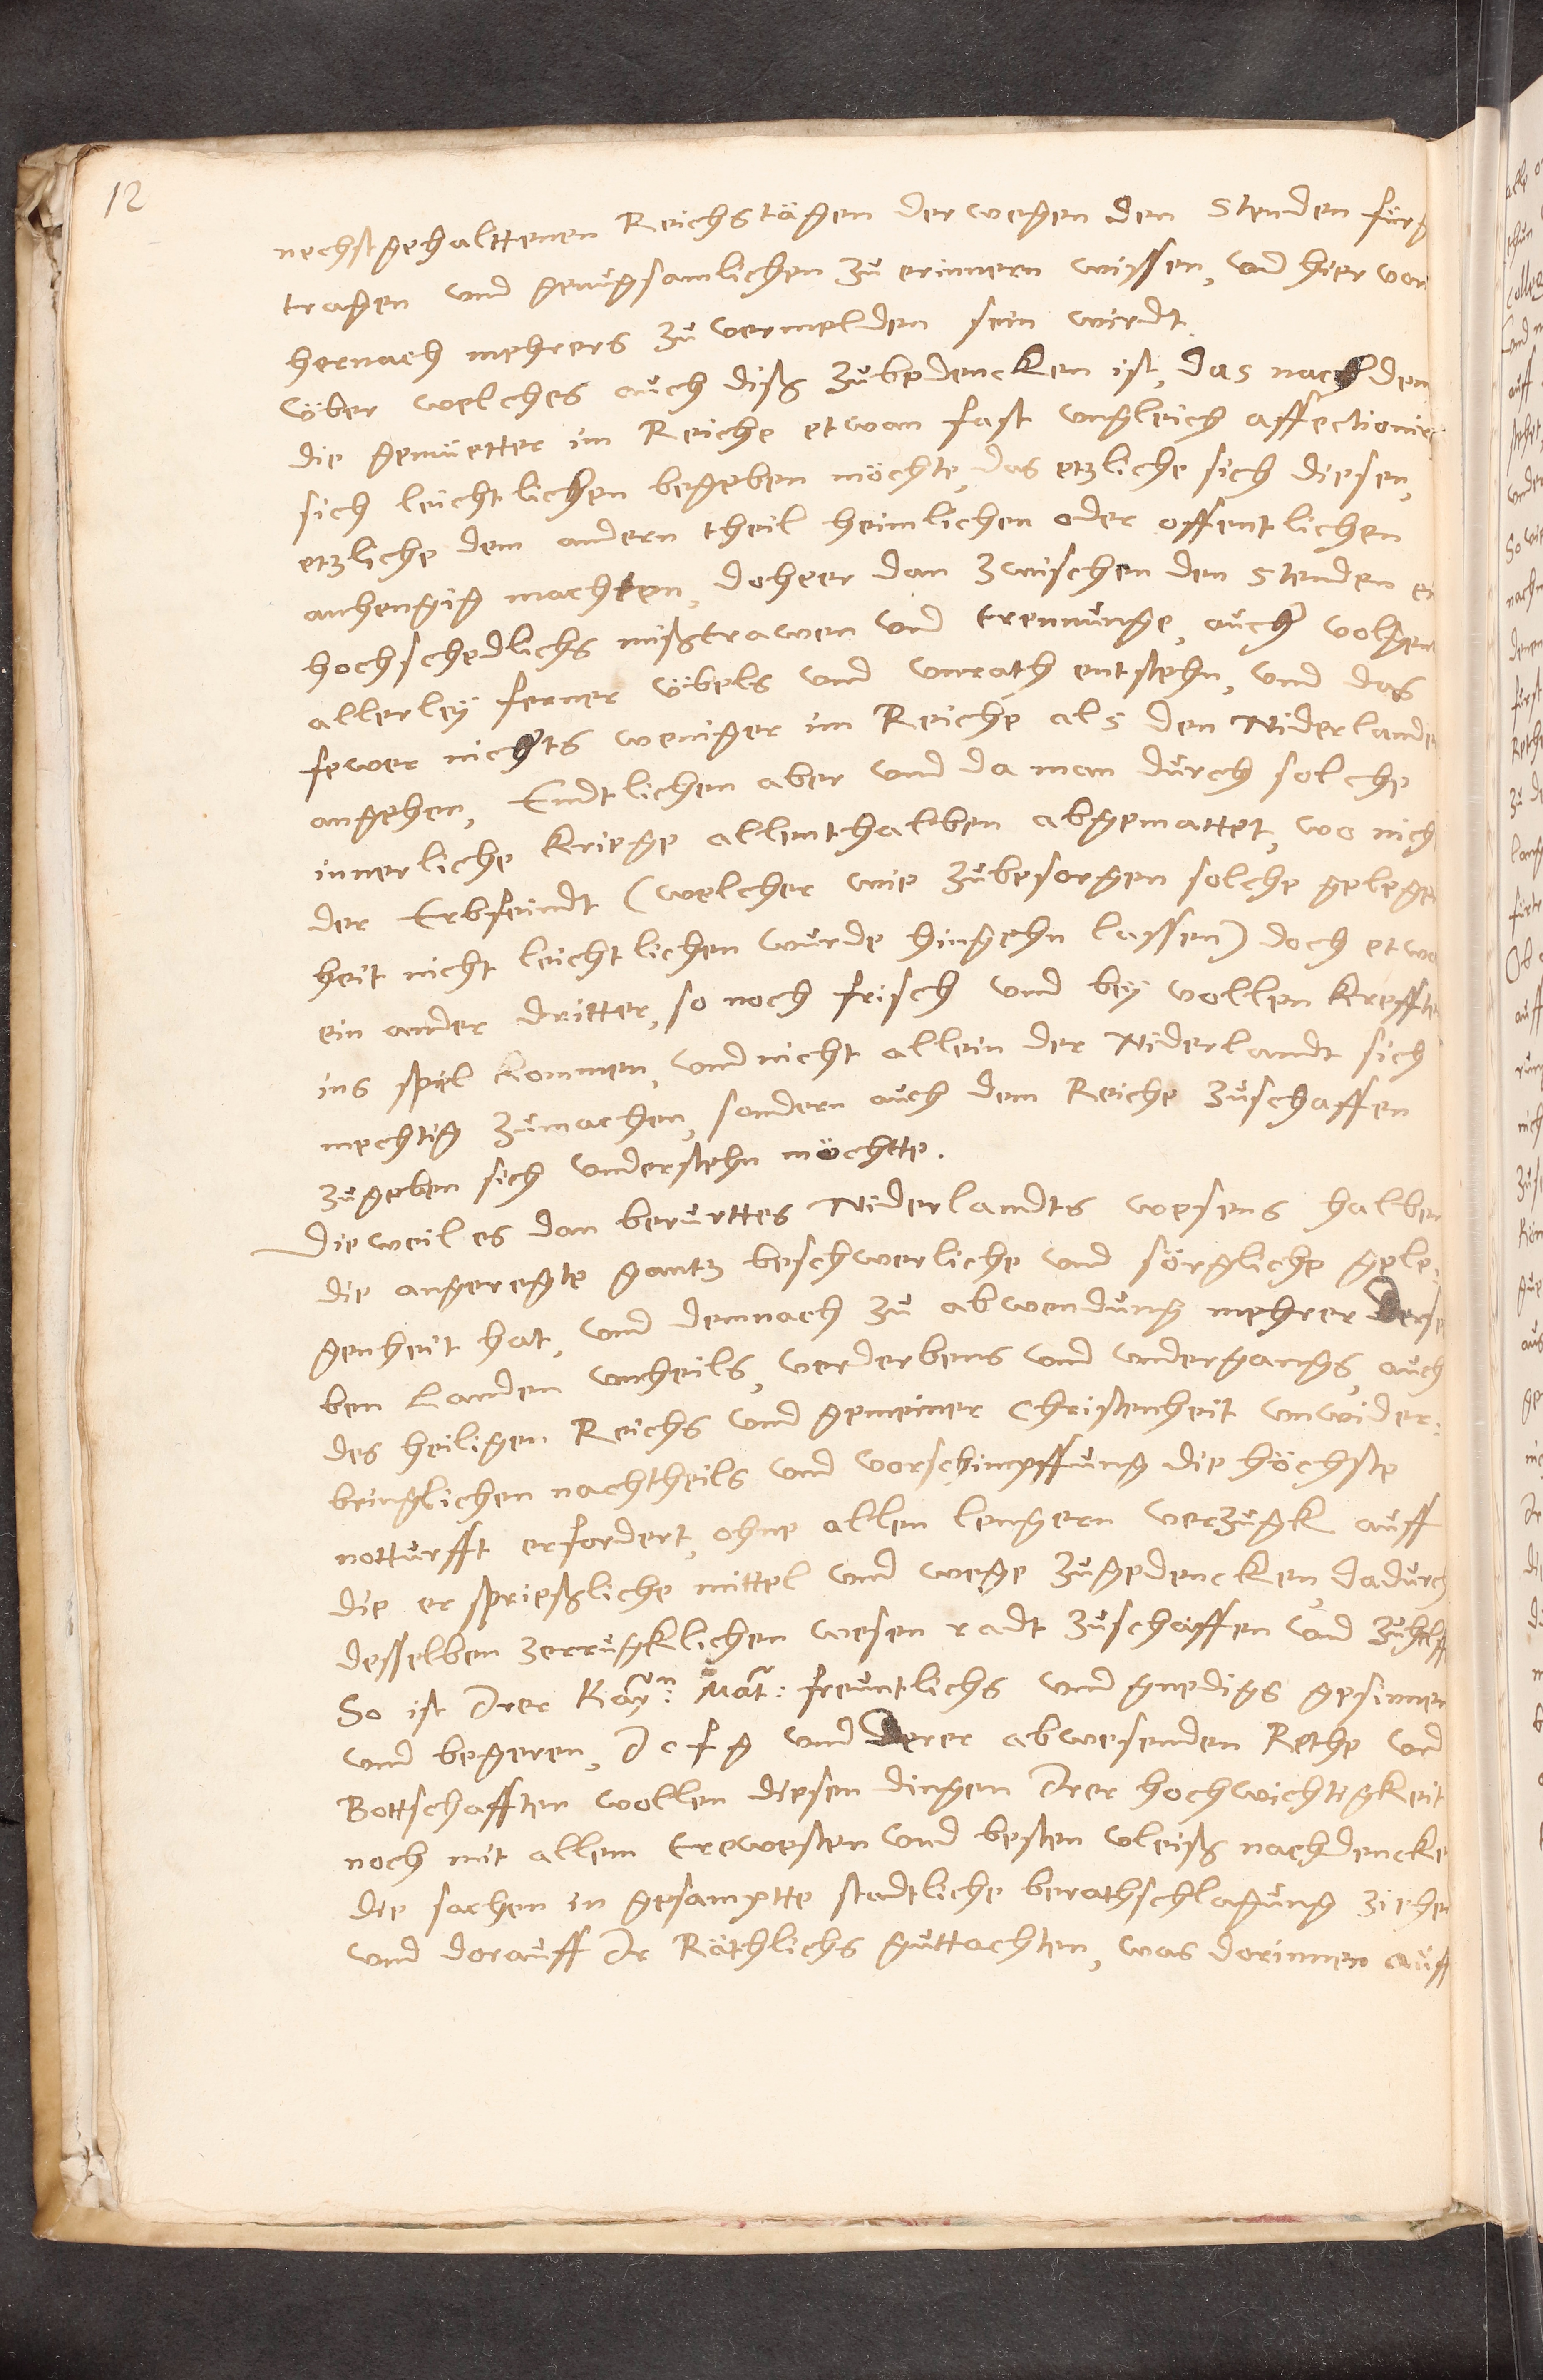 12
nechstgehalttenen Reichstägen derwegen den Stenden fürg
tragen und genugsamlichen zu erinnern wissen, und hier von
hernach mehrers zu vermelden sein wirdt.
Über welches auch diß zubedencken ist, das nach dem
die gemüetter im Reiche etwan fast ungleich affectionirt
sich leichtlichen begeben möchte, das etzliche sich diesen,
etzliche dem andern theil heimlichen oder offentlichen
anhengig machten, doheer dan zwischen den Stenden ein
hochschedlichs mißtrawen und trennunge, auch volgent
allerley ferner übels und unrath entstehn, und das
fewer nichts weniger im Reiche als den Niderlanden
angehen, Endtlichen aber und da man durch solche
innerliche Kriege allenthalben abgemattet, wo nich
der Erbfeindt (welcher wie zubesorgen solche gelegen
heit nicht leichtlichen wurde hingehn lassen) doch etwa
ein ander dritter, so noch frisch und bey vollen Krefften
ins spiel kommen, und nicht allein der Niderlandt sich
mechtig zumachen, sondern auch dem Reiche zuschaffen
zugeben sich understehn möchtte.
Dieweil es dan berurttes Niderlandts wesens halben
die angeregte gantz beschwerliche und sörgliche gele,
genheit hat, und demnach zu abwendung mehrer dersel
ben Landen unheils, verderbens und undergangs, auch
des heiligen Reichs und gemeiner Christenheit unwider:
bringlichen nachtheils und vorschimpffung die höchste
notturfft erfordert, ohne allen lengern verzugk auff
die ersprießliche mittel und wege zugedencken, dadurch
desselben zerrugklichen wesen radt zuschaffen und zuhelff
So ist Irer Kayn: Mat: freuntlichs und gnedigs gesinnen
und begeren, I c f g und derer abwesenden Rethe und
Bottschafften wollen diesen dingen Irer hochwichtigkeit
noch mit allem trewesten und besten vleiß nachdencke
die sachen in gesamptte stadtliche berathschlagung ziehen
und dorauff Ir Räthlichs guttachten, was dorinnen auff